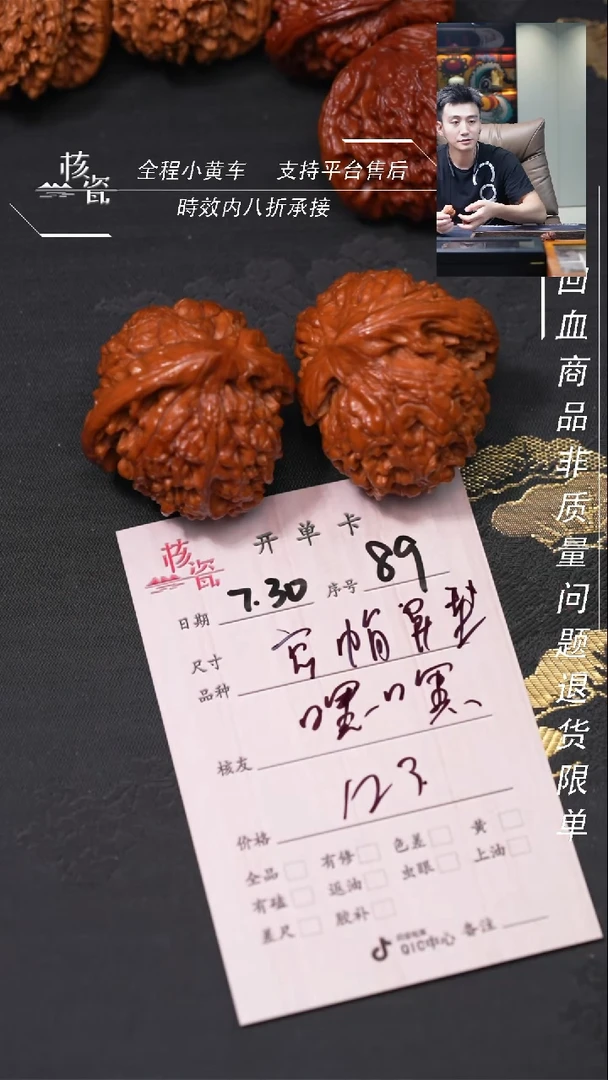 核瓷
全程小黄车 支持平台售后
時效内八折承接
回血商品非质量问题退货限单
核瓷
开单卡
日期 7.30 序号 89
尺寸
品种 官帽异型
嘿嘿
核友
123
价格
全品 有修 色差 黄
有磕 返油 虫眼 上油
差尺 胶补
QIC中心 备注